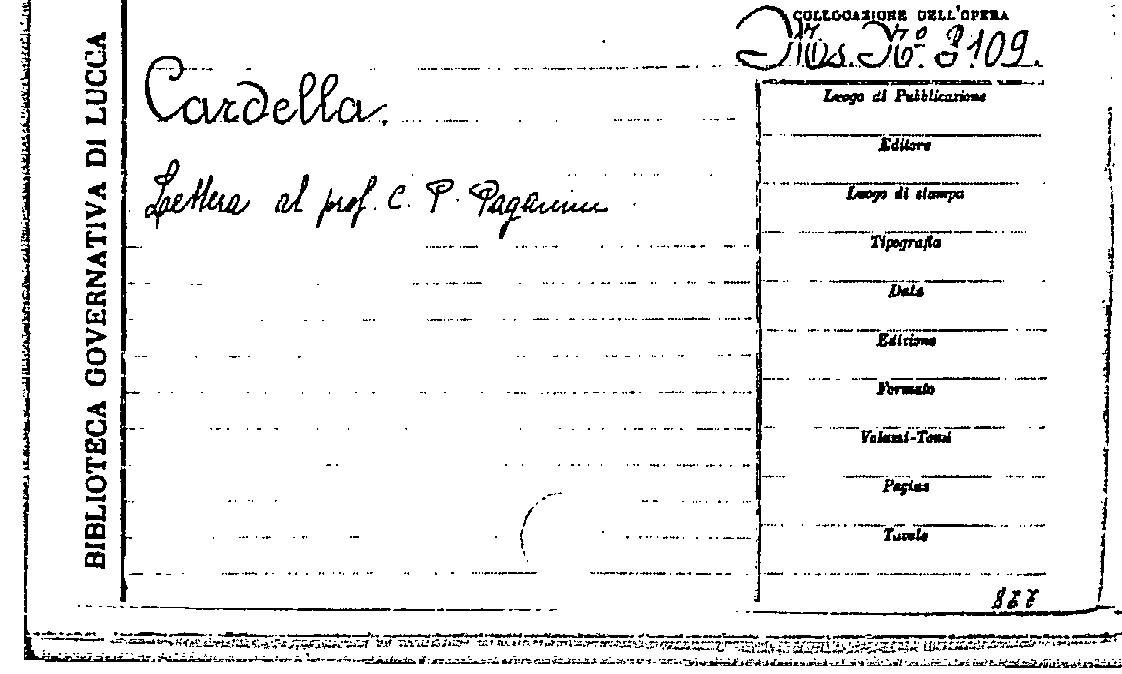 BIBLIOTECA GOVERNATIVA DI LUCCA
COLLOCAZIONE DELL'OPERA
Ms. No. 3109.
Cardella.
Lettera al prof. C. P. Paganini
Luogo di Pubblicazione
Editore
Luogo di stampa
Tipografia
Data
Edizione
Formato
Volumi-Tomi
Pagine
Tavole